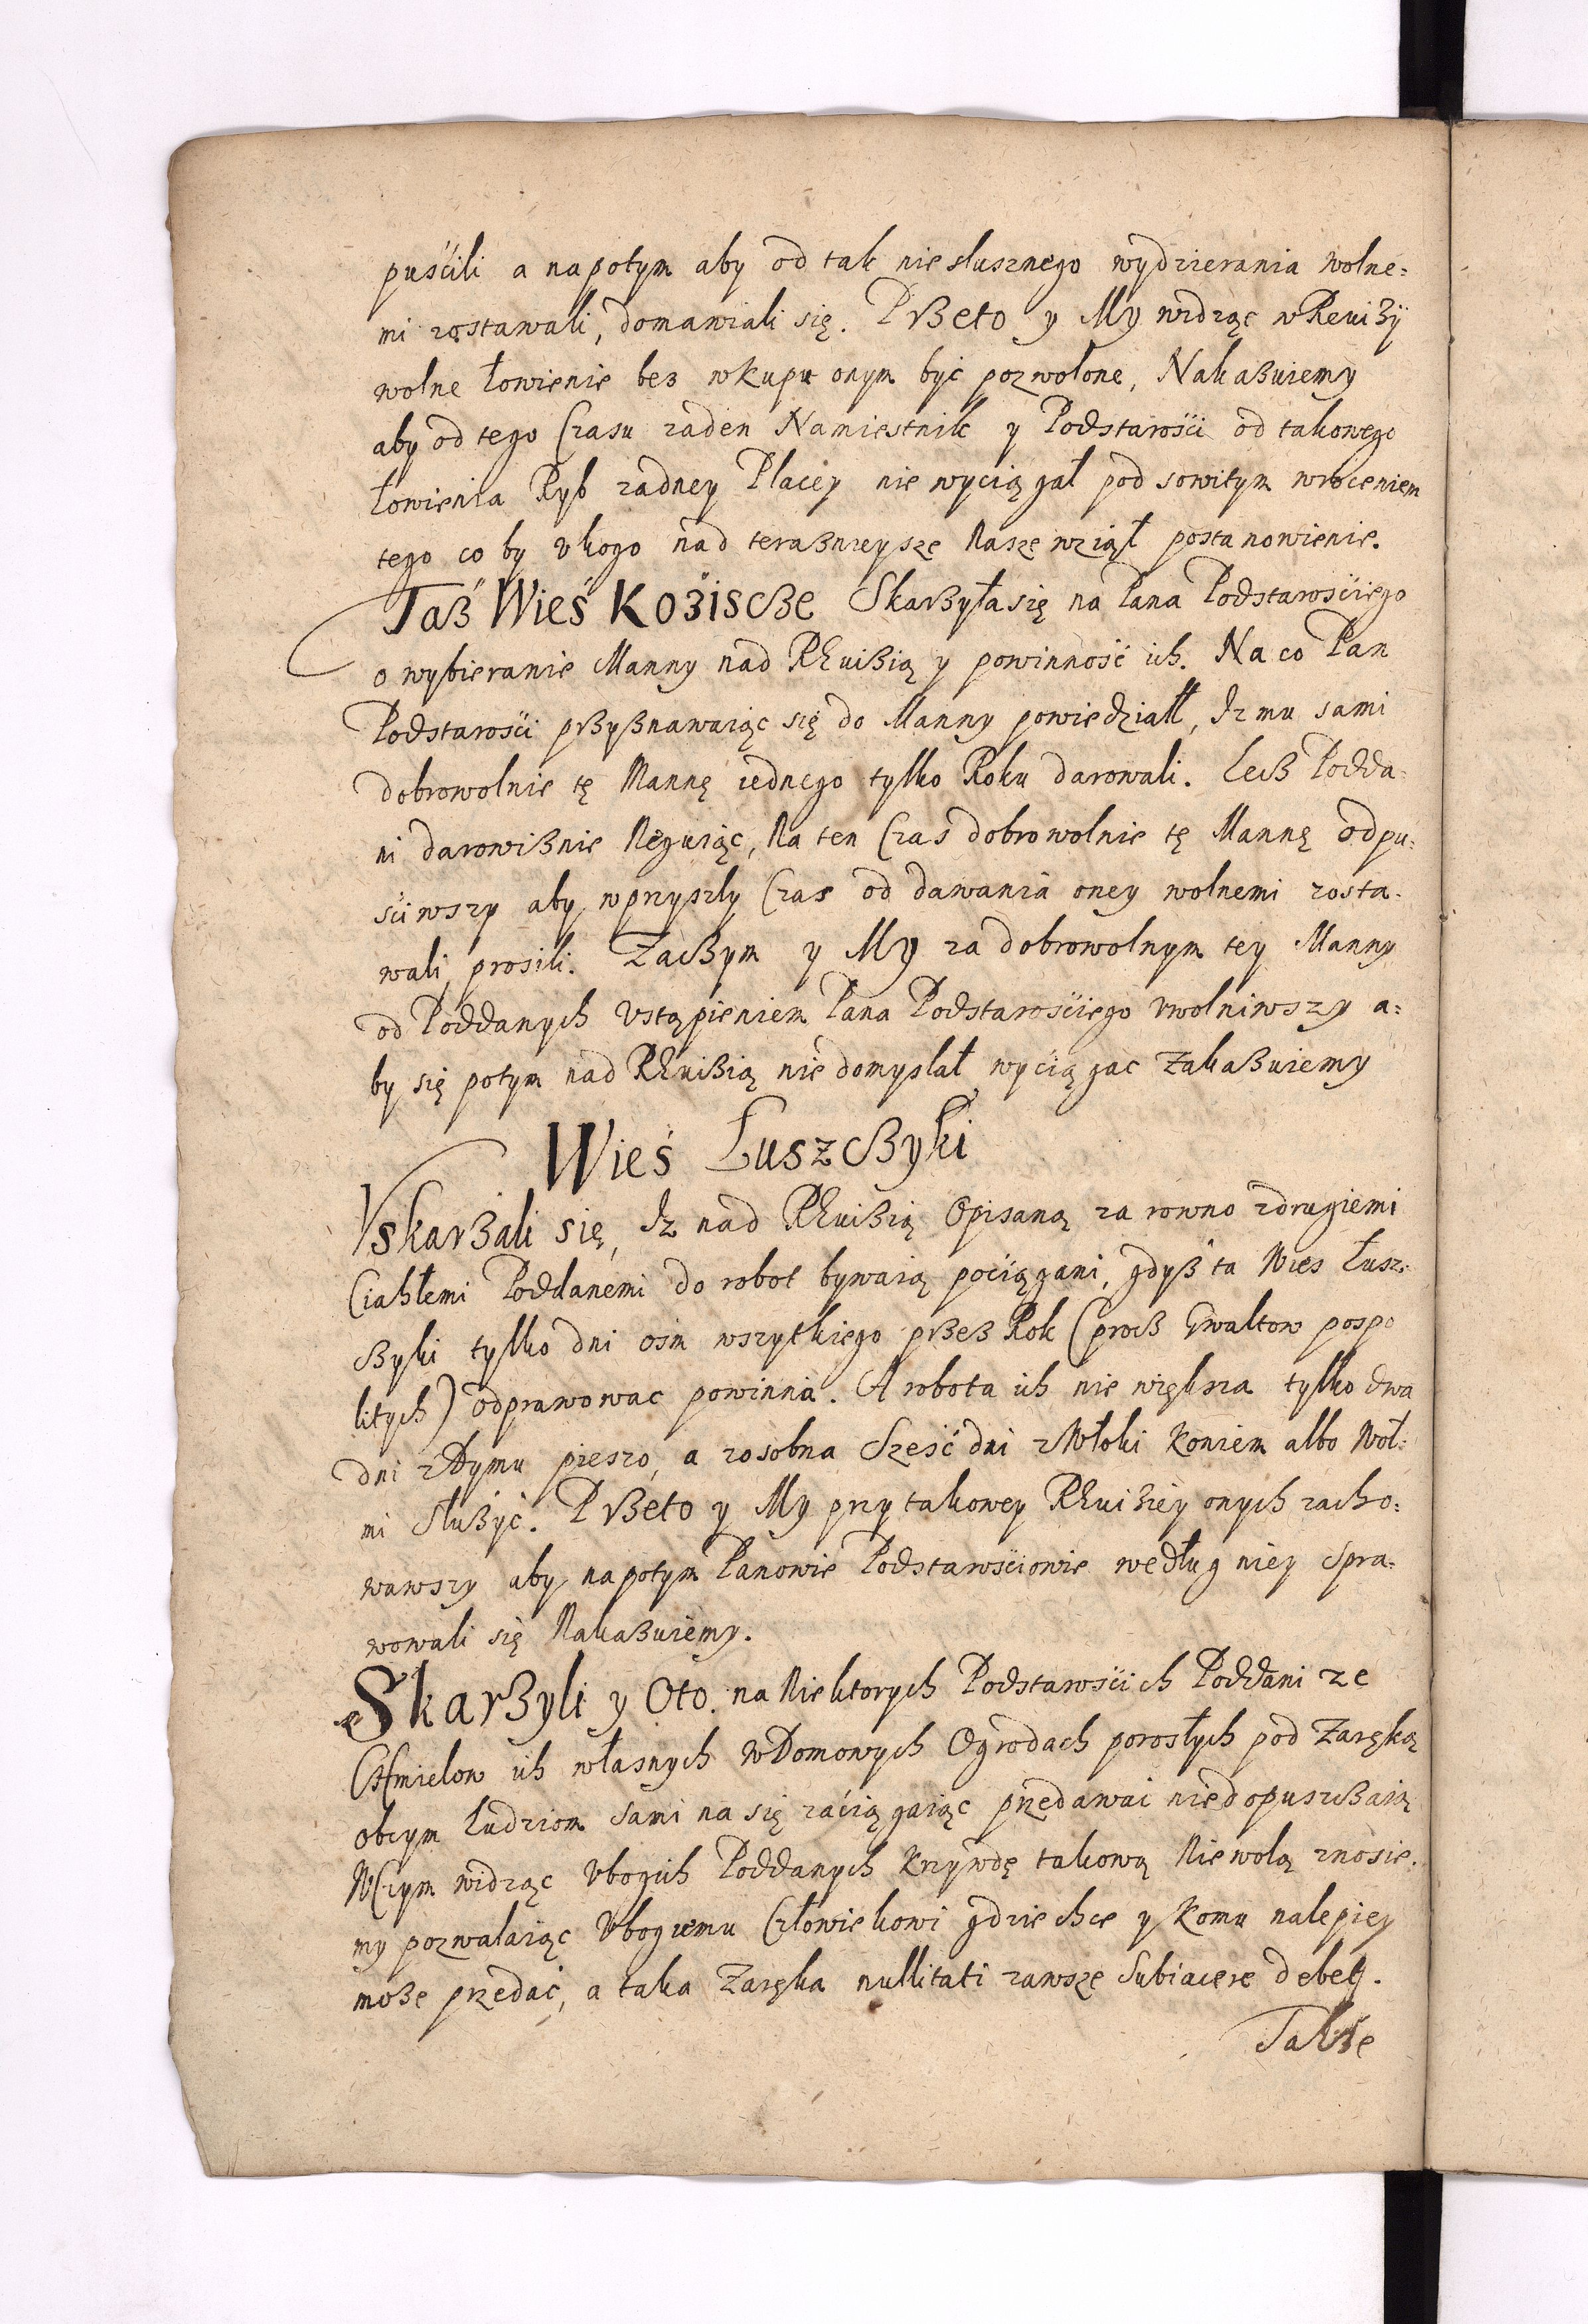 puścili a napotym aby od tak niesłusznego wydzierania wolne=
mi zostawali, domawiali się. Pßeto y My widząc w Reuißÿ
wolne łowienie bez wkupu onym być pozwolone, Nakaßuiemy
aby od tego Czasu zaden Namiestnik y Podstarości od takowego
łowienia Ryb zadney Płacey nie wyciągał pod sowitym wroceniem
tego co by v kogo nad teraßnieysze Nasze wziął postanowienie.
Taß Wieś Kożiscże Skarżyła się na Pana Podstarosciego
o wybieranie Manny nad REuißią y powinność ich. Na co Pan
Podstarości pßyßnawaiąc się do Manny powiedziałł, Iz mu sami
dobrowolnie tę Mannę iednego tylko Roku darowali. Lecß Podda=
ni darowißnie Neguiąc, Na ten Czas dobrowolnie tę Mannę odpu=
ściwszy aby w przyszły Czas od dawania oney wolnemi zosta=
wali prosili. Zacßym y My za dobrowolnym tey Manny
od Poddanych Vstąpieniem Pana Podstarościego vwolniwszy a=
by się potym nad REuißią nie domyslał wyciągac zakaßuiemy
Wieś Łuszcżyki
Vskarżali się, Iz nad REuißią Opisaną za rowno z drugiemi
Ciahłemi Poddanemi do robot bywaią pociągani, gdyß ta Wies Łusz=
cżyki tylko dni osm wszytkiego pßeß Rok (procß Gwałtow pospo
litych) odprawowac powinna. A robota ich nie większa tylko dwa
dni z Dymu pieszo, a zosobna Sześć dni z Włoki Koniem albo Woł=
mi Służyć. Pßeto y My przy takowey REuißiey onych zacho=
wawszy aby napotym Panowie Podstarościowie według niey spra=
wowali się Nakaßuiemy.
Skarżyli y Oto. na Niektorych Podstarościch Poddani ze
CHmielow ich własnych w Domowych Ogrodach porosłych pod Zaręką
obcym Ludziom sami na się zaciągaiąc przedawac niedopuszcżaią
W Czym widząc Vbogich Poddanych Krzywdę takową Niewolą znosie=
my pozwalaiąc Vbogiemu Człowiekowi gdzie chce y Komu nalepiey
może przedać, a taka Zaręka nullitati zawsze Subiacere debet.
Także